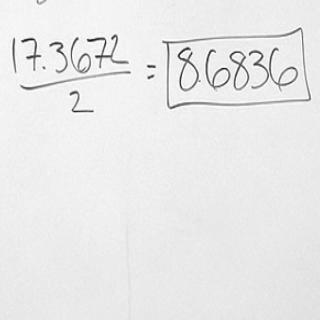 17.3672
2
= 8.6836